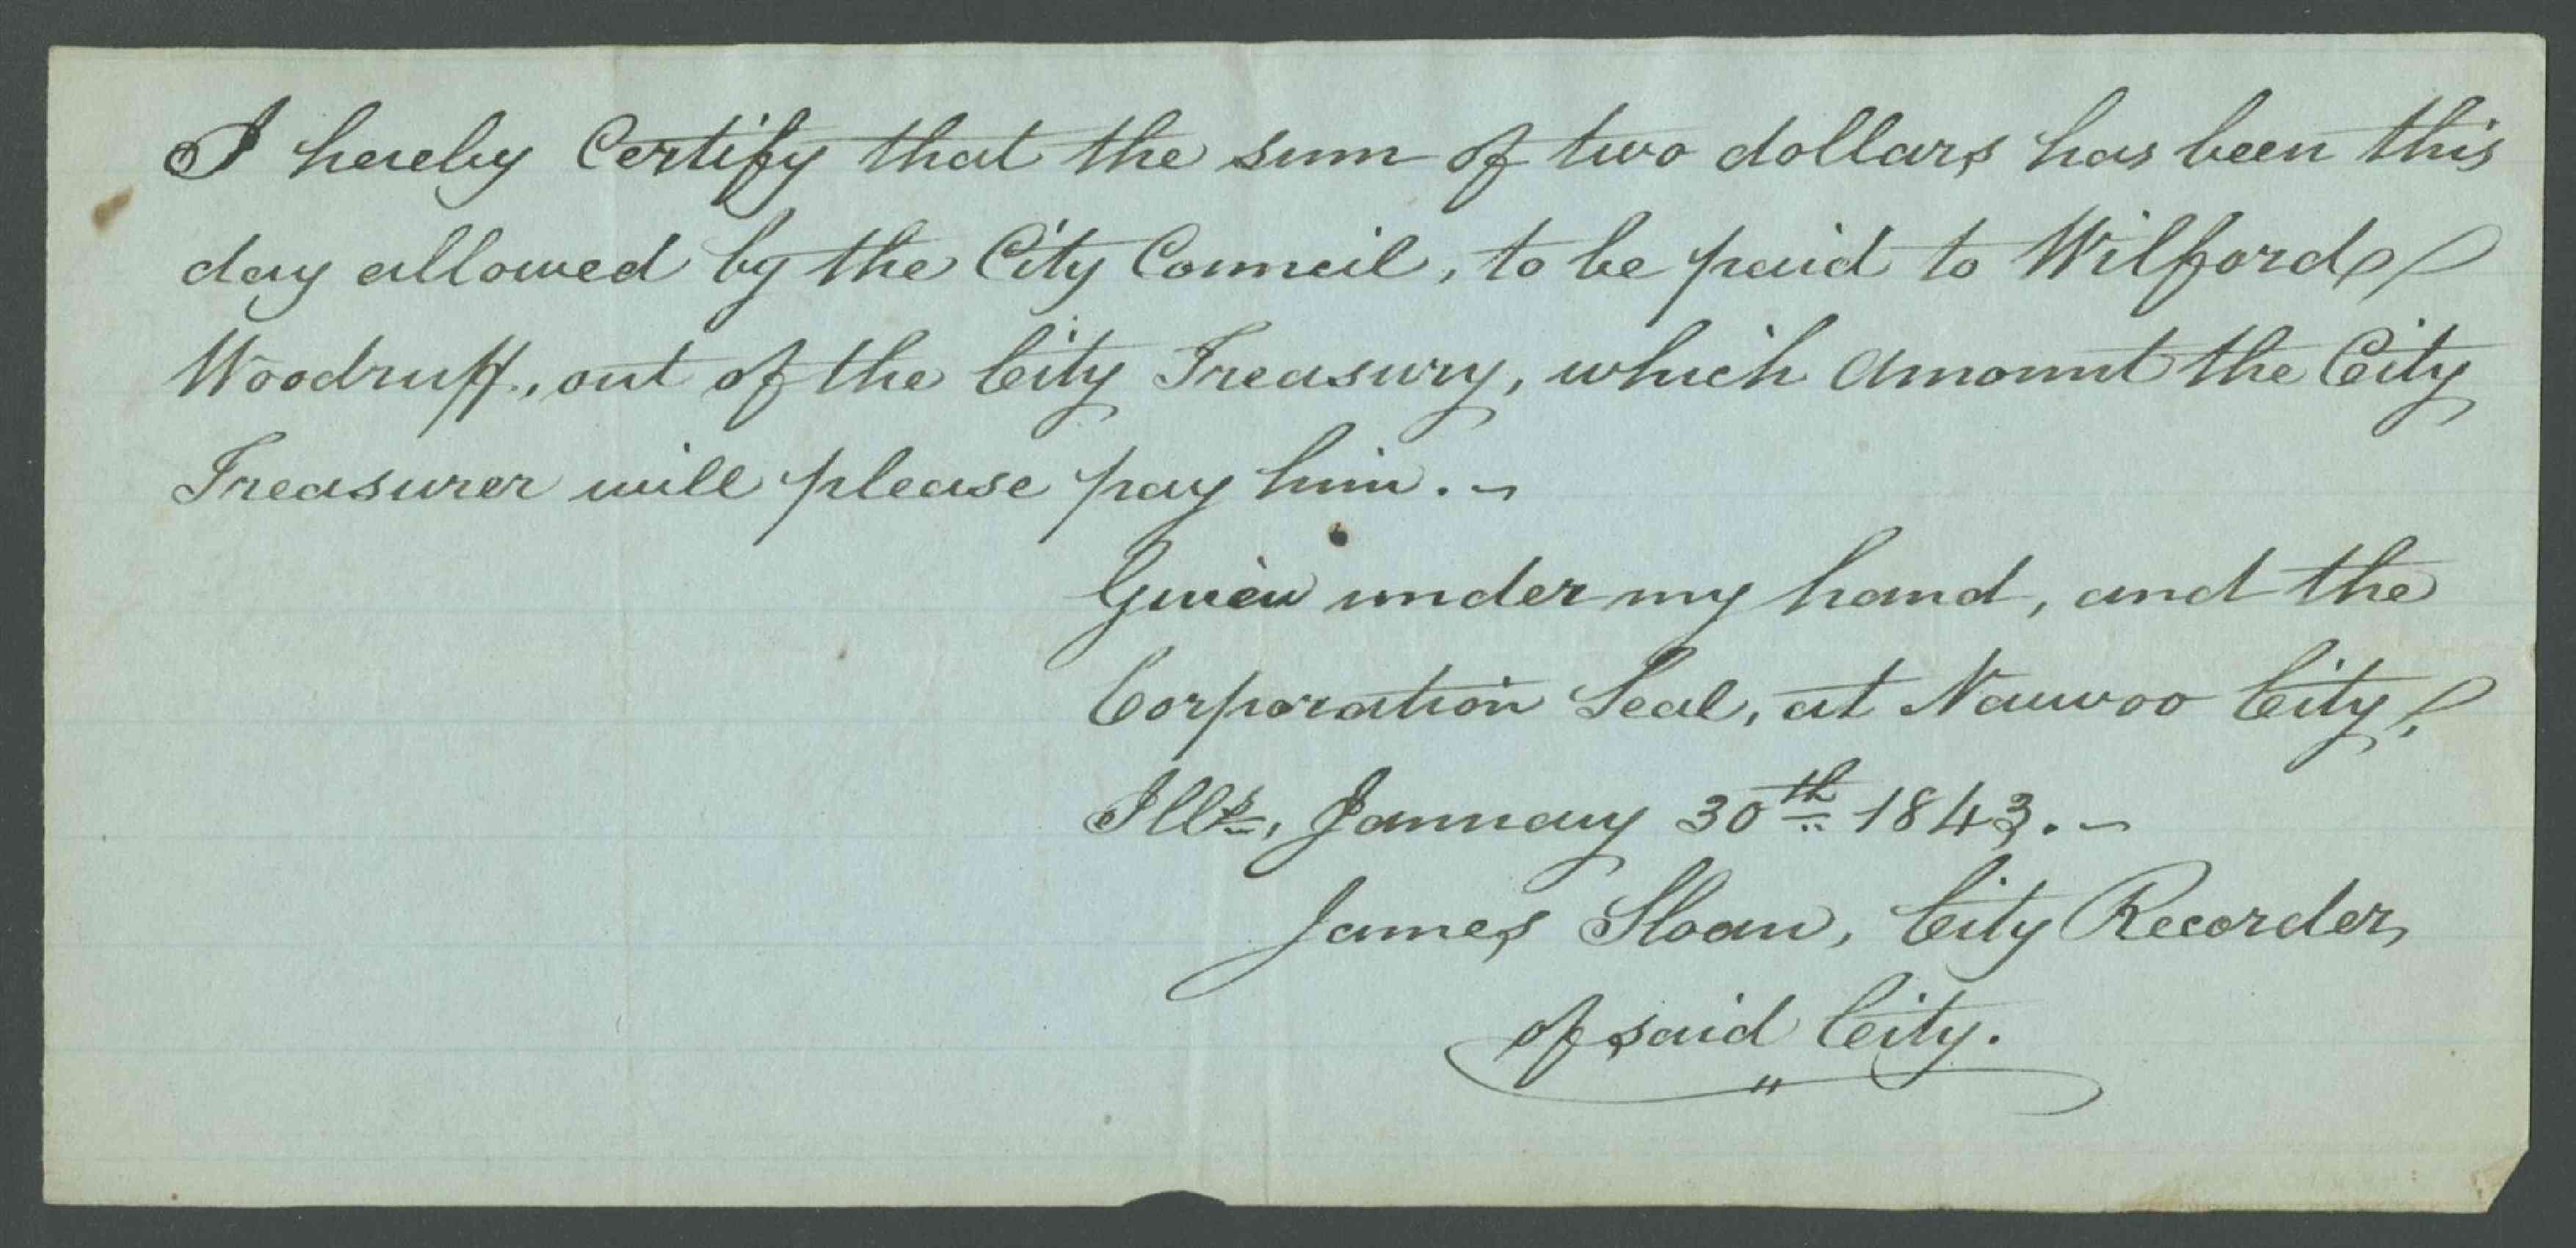 I hereby Certify that the sum of two dollars has been this
day allowed by the City Council, to be paid to Wilford
Woodruff., out of the City Treasury, which Amount the City
Treasurer will please pay him. -
Given under my hand, and the
Corporation Seal, at Nauvoo City,
Ills, January 30th 1843. -
James Sloan, City Recorder,
of said City.